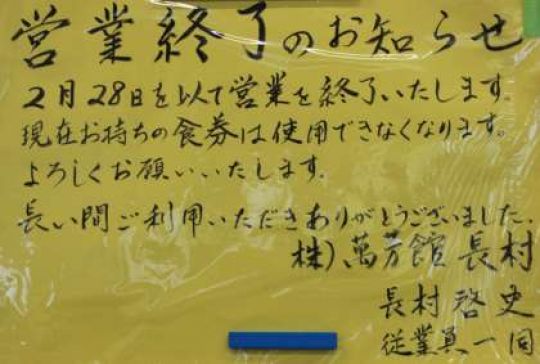 営業終了のお知らせ
2月28日を以て営業を終了いたします。
現在お持ちの食券は使用できなくなります。
よろしくお願いいたします。
長い間ご利用いただきありがとうございました。
株)萬芳館 長村
長村啓史
従業員一同